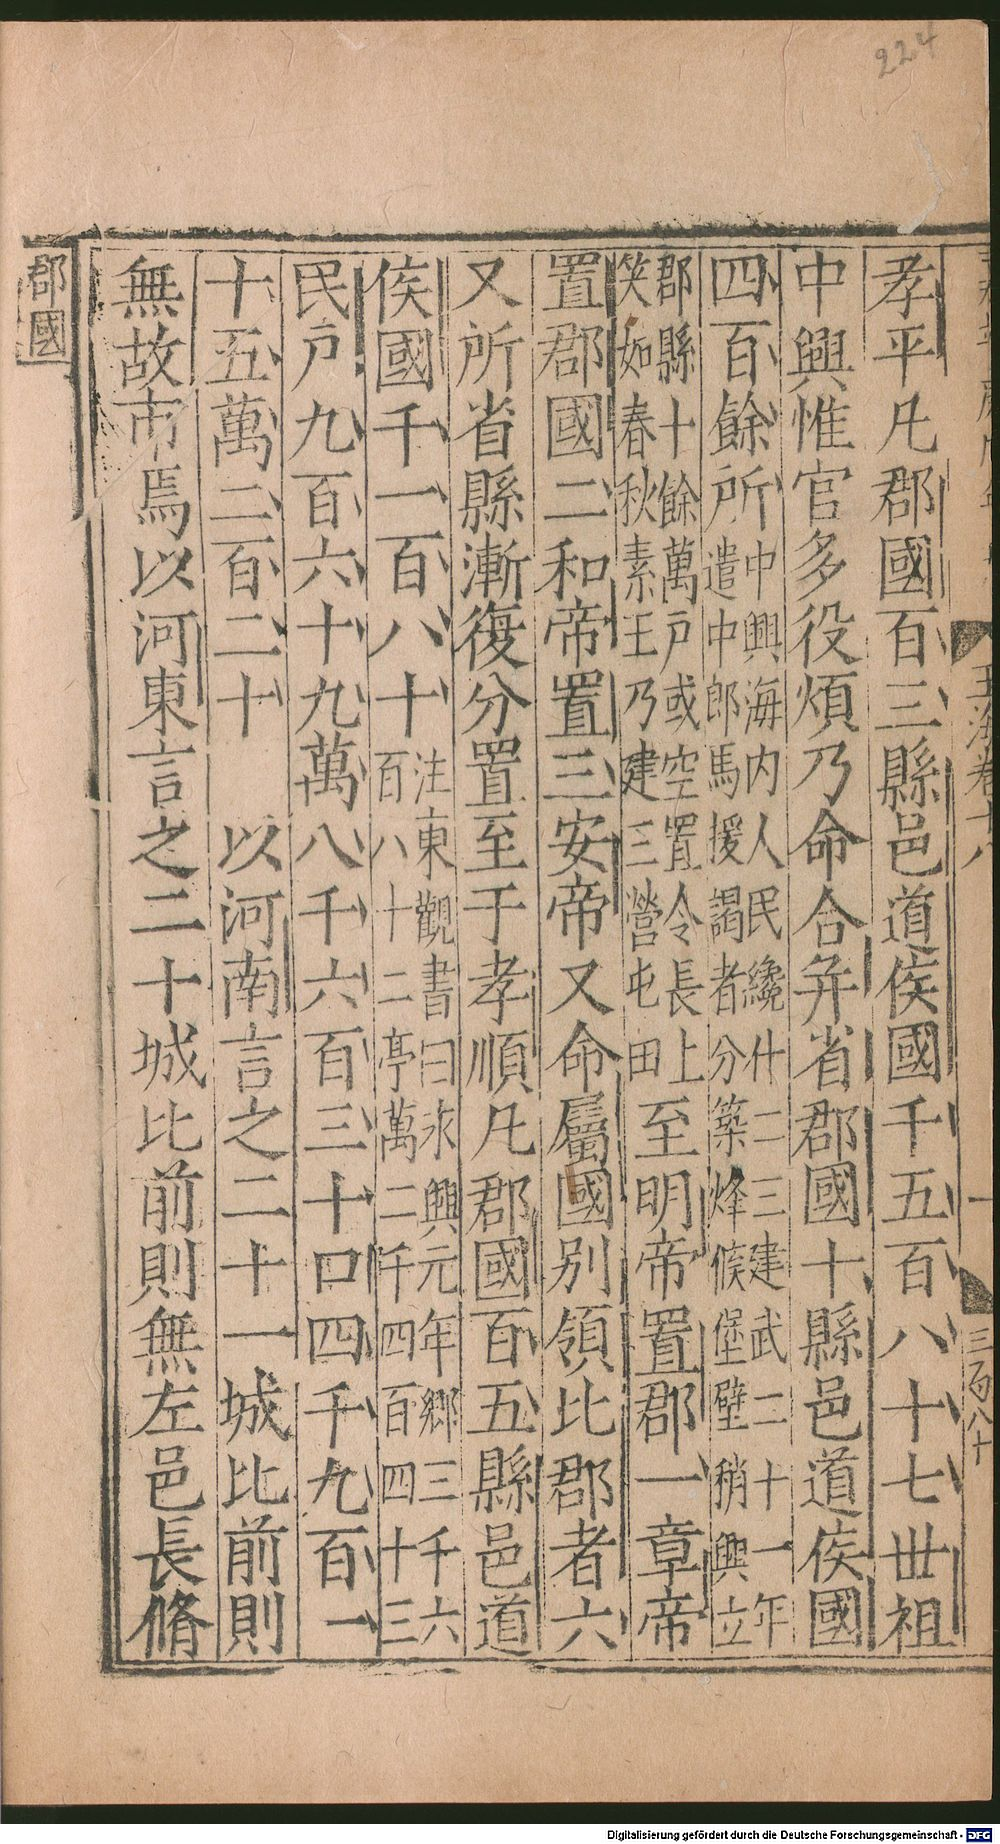 224
玉海卷十八
三百八十
孝平凡郡國百三縣邑道侯國千五百八十七世祖
中興惟官多役煩乃命合并省郡國十縣邑道侯國
四百餘所中興海内人民纔什二三建武二十一年
遣中郎馬援謁者分築烽候堡壁稍興立
郡縣十餘萬戸或空置令長上
笑如春秋素王乃建三營屯田至明帝置郡一章帝
置郡國二和帝置三安帝又命屬國别領比郡者六
又所省縣漸復分置至于孝順凡郡國百五縣邑道
侯國千一百八十注東觀書曰永興元年鄉三千六
百八十二亭萬二千四百四十三
民戸九百六十九萬八千六百三十口四千九百一
十五萬二百二十 以河南言之二十一城比前則
無故市焉以河東言之二十城比前則無左邑長脩
郡國
Digitalisierung gefördert durch die Deutsche Forschungsgemeinschaft - DFG